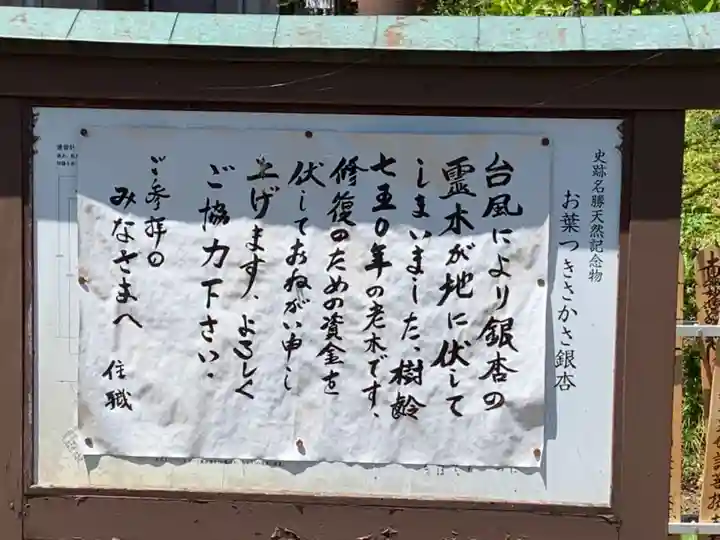 史跡名勝天然記念物
お葉つきさかさ銀杏
台風により銀杏の
霊木が地に伏して
しまいました、樹齢
七五〇年の老木です、
修復のための資金を
伏しておねがい申し
上げます、よろしく
ご協力下さい、
ご参拝の
みなさまへ
住職